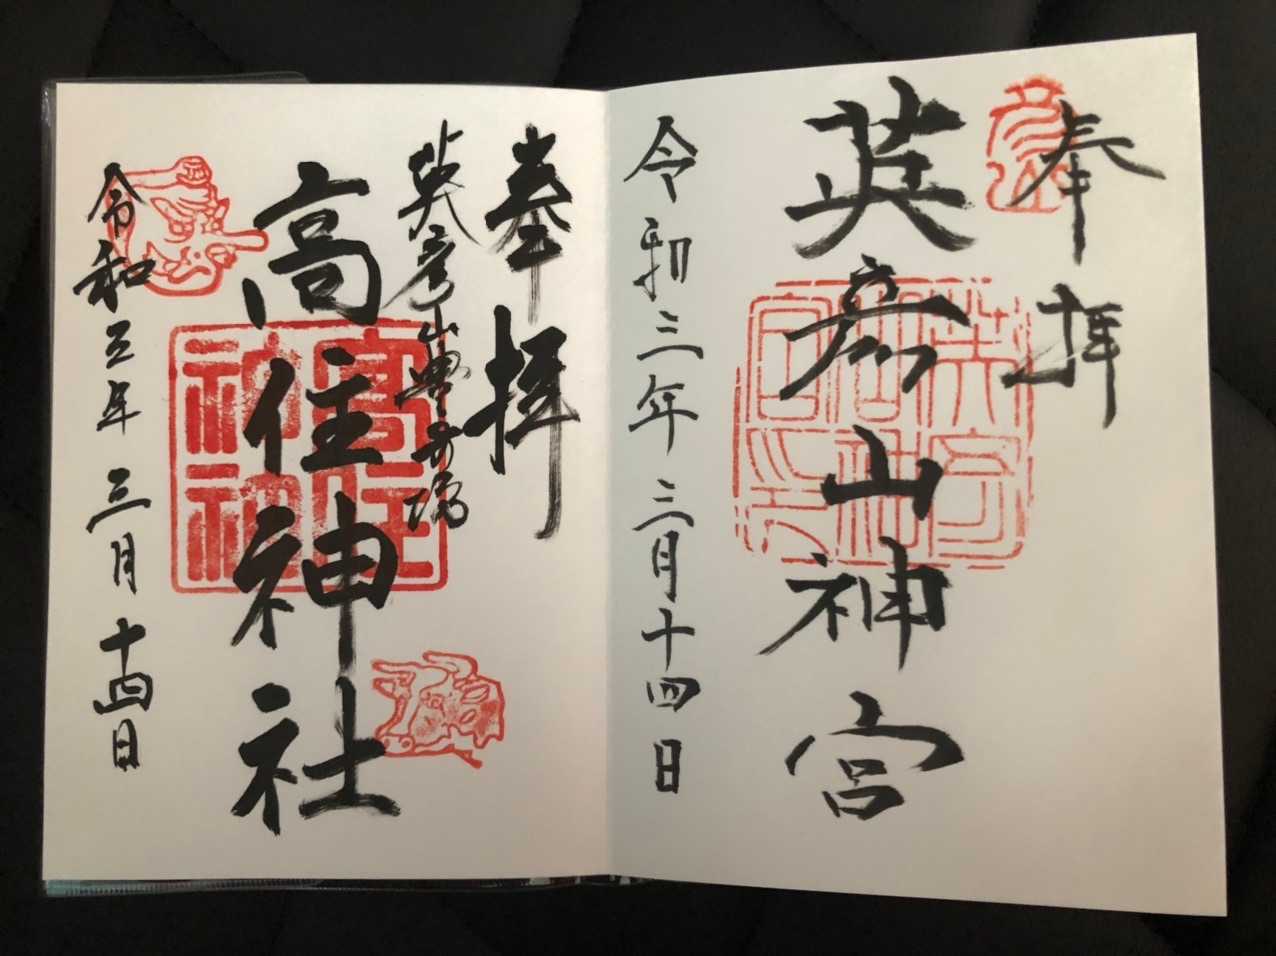 奉拝
英彦山神宮
令和三年三月十四日
奉拝
英彦山豊前坊
高住神社
令和三年三月十四日
高住神社